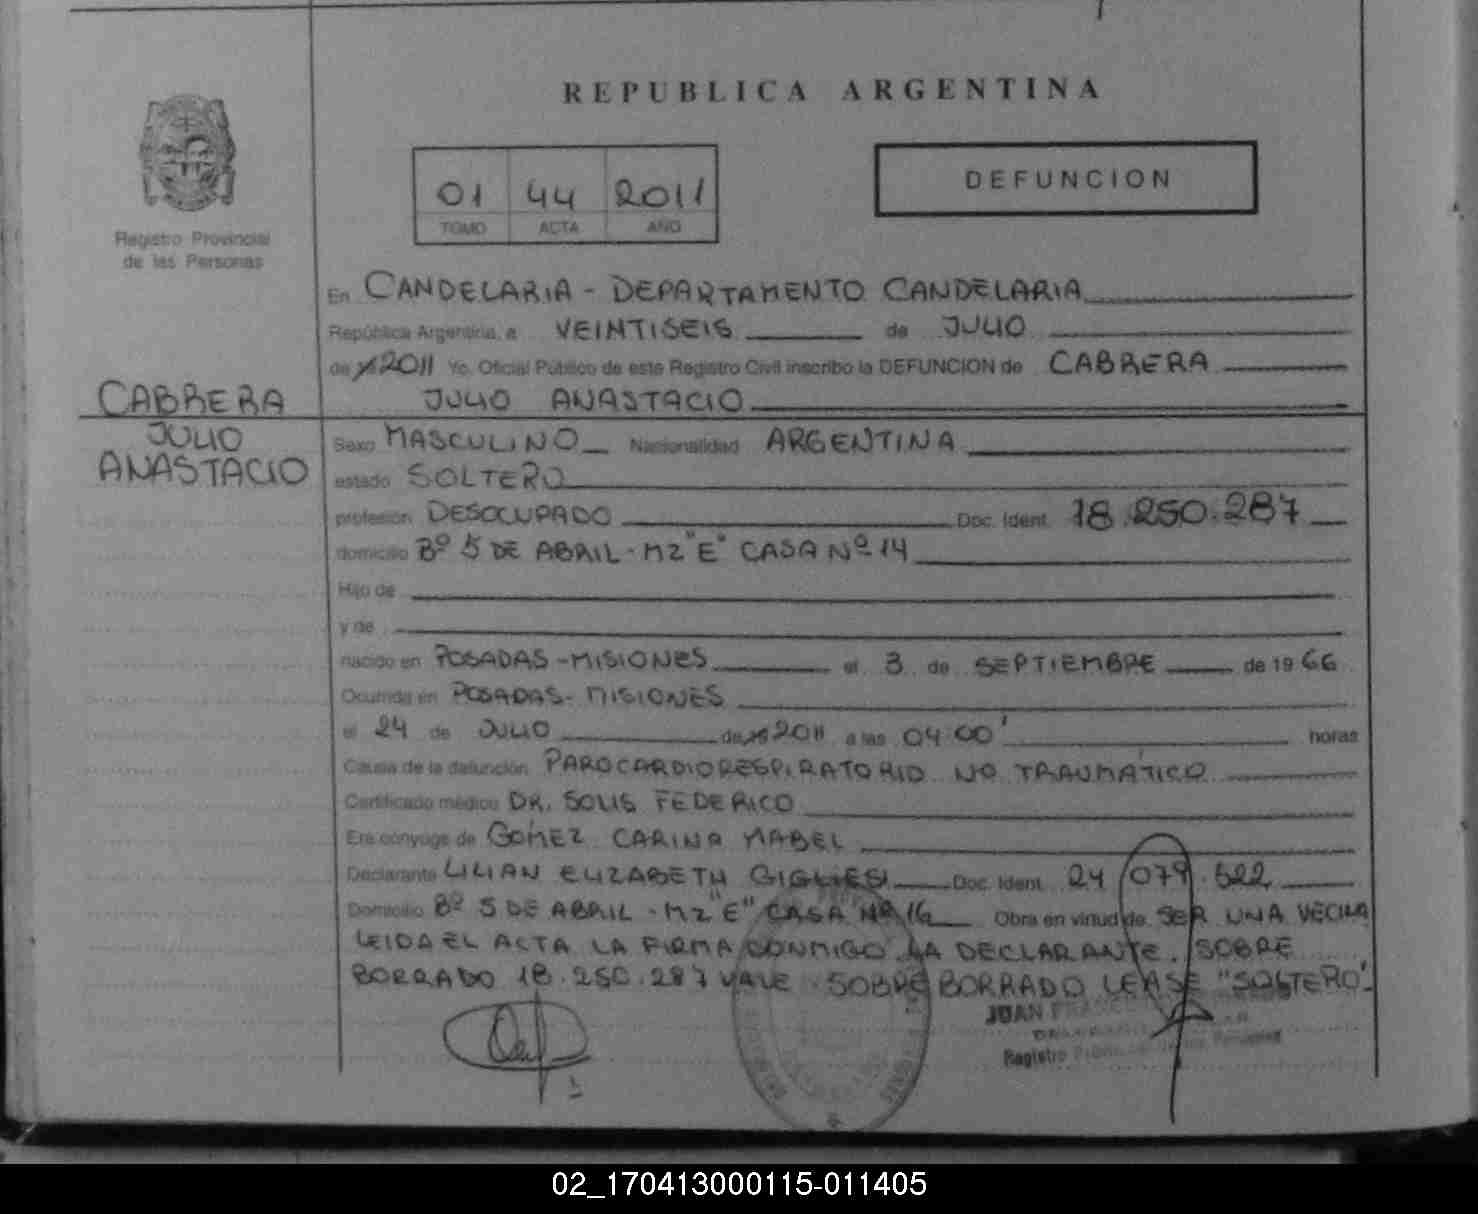 REPUBLICA ARGENTINA
01 44 2011
TOMO ACTA AÑO
DEFUNCION
Registro Provincial
de las Personas
En CANDELARIA - DEPARTAMENTO CANDELARIA
República Argentina, a VEINTISEIS de JULIO
de 2011 Yo, Oficial Público de este Registro Civil inscribo la DEFUNCION de CABRERA
JULIO ANASTACIO
CABRERA
JULIO
ANASTACIO
Sexo MASCULINO Nacionalidad ARGENTINA
estado SOLTERO
profesión DESOCUPADO Doc. Ident. 18.250.287
domicilio Bº 5 DE ABRIL - MZ "E" CASA Nº 14
Hijo de
y de
nacido en POSADAS - MISIONES el 3 de SEPTIEMBRE de 1966
Ocurrida en POSADAS - MISIONES
el 24 de JULIO de 2011 a las 04:00' horas
Causa de la defunción PAROCARDIORESPIRATORIO NO TRAUMÁTICO
Certificado médico DR. SOLIS FEDERICO
Era cónyuge de GOMEZ CARINA MABEL
Declarante LILIAN ELIZABETH Doc. Ident. 24.079.522
Domicilio Bº 5 DE ABRIL - MZ "E" CASA Nº 16 Obra en virtud de SER UNA VECINA
LEIDA EL ACTA LA FIRMA CONMIGO LA DECLARANTE. SOBRE
BORRADO 18.250.287 VALE SOBRE BORRADO LEASE "SOLTERO".
JUAN
Registro
02_170413000115-011405